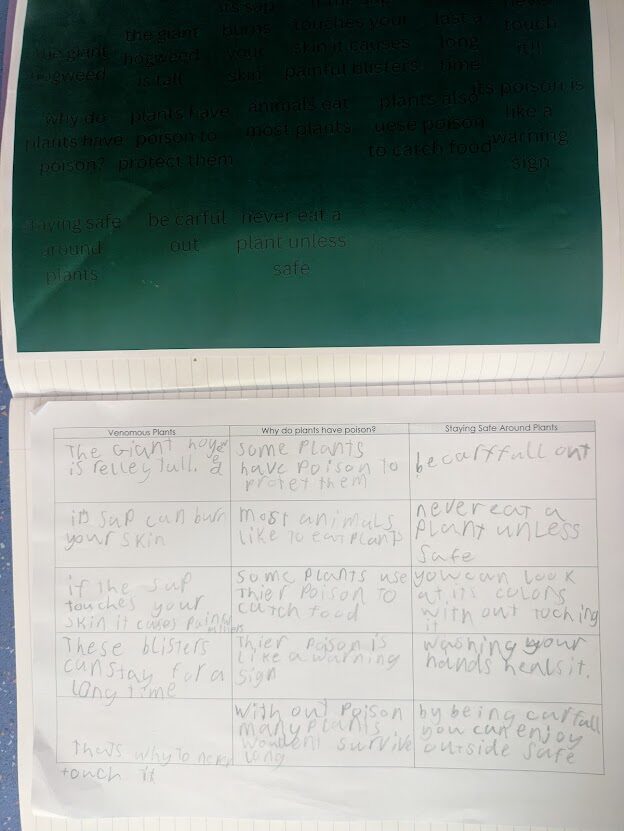 its sap
the giant burns touches your last a touch
the giant hogweed your skin it causes long it!!
hogweed is tall skin painful blisters time
why do plants have animals eat plants also its poison is
plants have poison to most plants uese poison like a
poison? protect them to catch food warning
sign
staying safe be carful never eat a
around out plant unless
plants safe
Venomous Plants
The Giant hogweed
is relley tall.
its sap can burn
your skin
if the sap
touches your
skin it cases painful blisters
These blisters
can stay for a
long time
thats why to never
touch it
Why do plants have poison?
some plants
have poison to
protet them
most animals
like to eat plants
some plants use
thier poison to
catch food
Thier poison is
like a warning
sign
with out poison
many plants
woudent survive
long
Staying Safe Around Plants
be carffull out
never eat a
plant unless
safe
you can look
at its colors
with out toching
it
washing your
hands heals it.
by being carfull
you can enjoy
outside safe